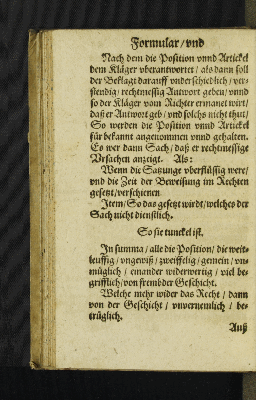 Formular/ vnd
Nach dem die Position vnnd Artickel
dem Kläger vberantwortet / als dann soll
der Beklagt darauff vnderschiedlich / ver-
stendig / rechtmessig Antwort geben / vnnd
so der Kläger vom Richter ermanet wirt /
daß er Antwort geb / vnd solchs nicht thut /
So werden die Position vnnd Artickel
für bekannt angenommen vnnd gehalten.
Es wer dann Sach / daß er rechtmessige
Vrsachen anzeigt. Als:
Wenn die Satzunge vberflüssig were /
vnd die Zeit der Beweisung im Rechten
gesetzt / verschienen
Item / So das gesetzt wirdt / welches der
Sach nicht dienstlich.
So sie tunckel ist.
In summa / alle die Position / die weit-
leuffig / vngewiß / zweiffelig / gemein / vn-
müglich / einander widerwertig / viel be-
grifflich / von frembder Geschicht.
Welche mehr wider das Recht / dann
von der Geschicht / vnvernemlich / be-
trüglich.
Auß